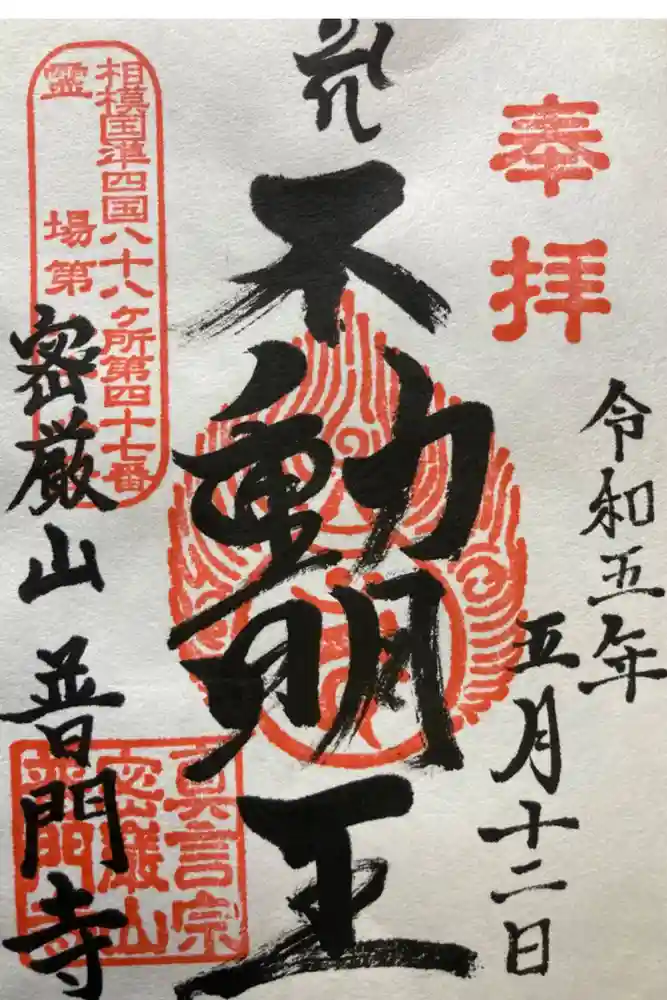 奉拝
令和五年
五月十二日
不動明王
相模国準四国八十八ヶ所第四十七番
霊場第
密厳山 普門寺
真言宗
密巌山
普門寺